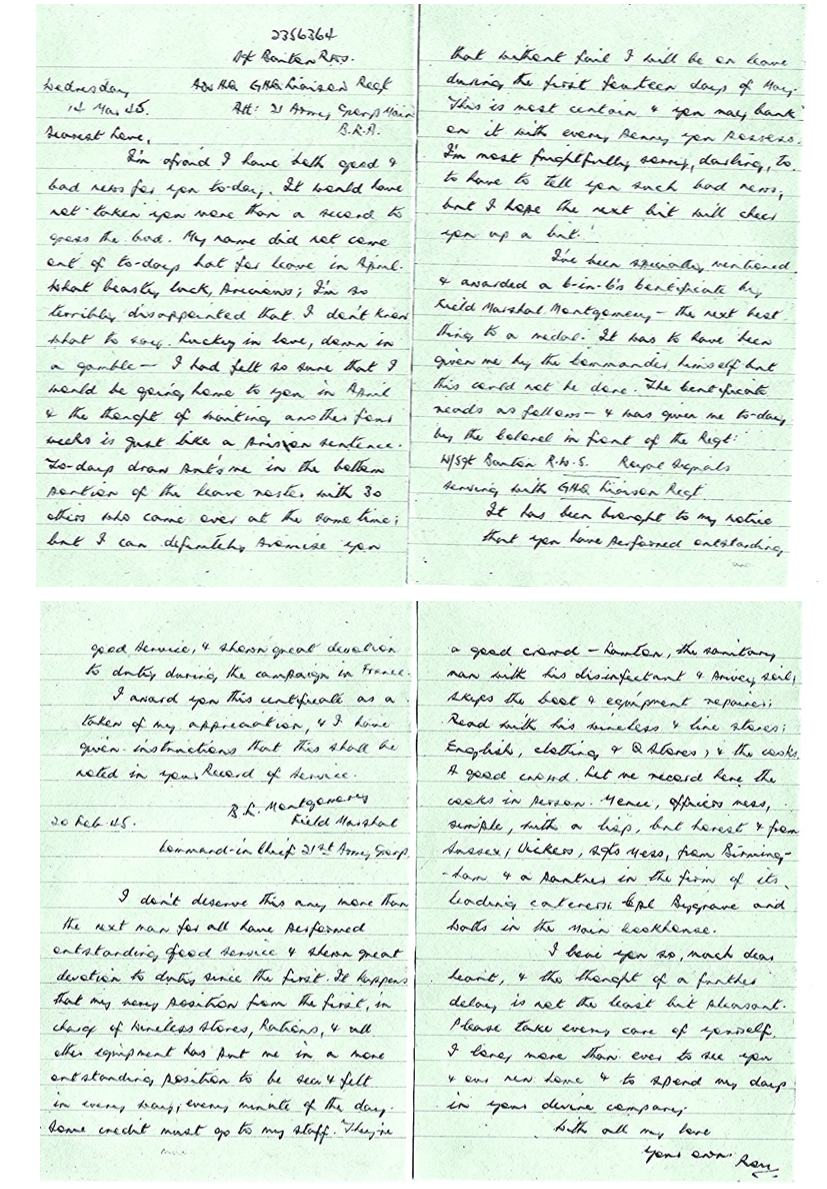 2356364
Sgt Banton R.W.S.
Wednesday Adv HQ GHQ Liaison Regt
14 Mar 45. Att: 21 Army Group Main
B.L.A.
Dearest Love,
I'm afraid I have both good &
bad news for you to-day. It would have
not taken you more than a second to
guess the bad. My name did not come
out of to-days hat for leave in April.
What beastly luck, Precious; I'm so
terribly disappointed that I don't know
what to say. Lucky in love, down in
a gamble — I had felt so sure that I
would be going home to you in April
& the thought of waiting another four
weeks is just like a prison sentence.
To-days draw puts me in the bottom
portion of the leave roster with 30
others who came over at the same time;
but I can definitely promise you
that without fail I will be on leave
during the first fourteen days of May.
This is most certain & you may bank
on it with every penny you possess.
I'm most frightfully sorry, darling, to
to have to tell you such bad news,
but I hope the next bit will cheer
you up a bit.
I've been specially mentioned
& awarded a C-in-C's Certificate by
Field Marshal Montgomery — the next best
thing to a medal. It was to have been
given me by the Commander himself but
this could not be done. The Certificate
reads as follows — & was given me to-day
by the Colonel in front of the Regt:
W/Sgt Banton R.W.S. Royal Signals
serving with GHQ Liaison Regt
It has been brought to my notice
that you have performed outstanding
good service, & shown great devotion
to duty during the campaign in France.
I award you this certificate as a
token of my appreciation, & I have
given instructions that this shall be
noted in your Record of Service.
B.L. Montgomery
20 Feb 45. Field Marshal
Command-in Chief 21st Army Group.
I don't deserve this any more than
the next man for all have performed
outstanding good service & shown great
devotion to duty since the first. It happens
that my very position from the first, in
charge of Wireless Stores, Rations, & all
other equipment has put me in a more
outstanding position to be seen & felt
in every way, every minute of the day.
Some credit must go to my staff. They're
a good crowd — the sanitary
man with his disinfectant & Privey soil;
Skyes the boot & equipment repairer;
Read with his wireless & line stores;
English, clothing & Q Stores; & the cooks.
A good crowd. Let me record here the
cooks in person. Hence, officers mess,
simple, with a lisp, but honest & from
Sussex; Vickers, Sgts Mess, from Birming-
-ham & a partner in the firm of its
leading caterers; Cpl Bygrave and
Watts in the Main Cookhouse.
I love you so, much dear
heart, & the thought of a further
delay is not the least bit pleasant.
Please take every care of yourself.
I long more than ever to see you
& our new home & to spend my days
in your devine company.
With all my love
Your own Ron